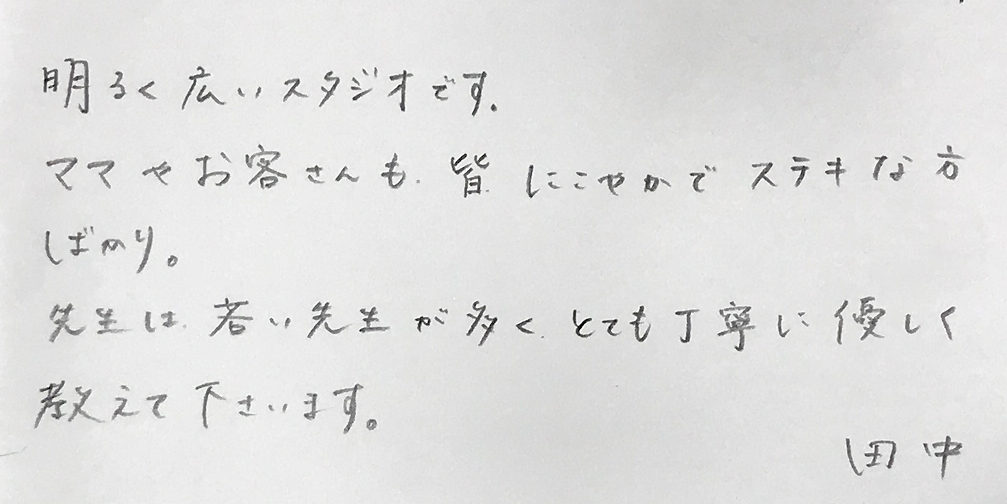 明るく広いスタジオです.
ママやお客さんも.皆.にこやかでステキな方
ばかり。
先生は.若い先生が多く.とても丁寧に優しく
教えて下さいます。
田中